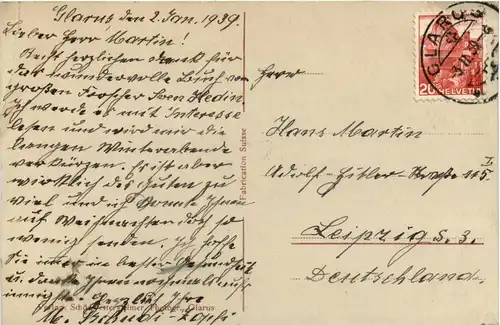 Glarus den 2. Jan. 1939.
Lieber Herr Martin!
Recht herzlichen Dank für
das wundervolle Buch vom
großen Forscher Sven Hedin
Ich werde es mit Interesse
lesen und wird mir die
langen Winterabende
verkürzen. Es ist aber
wirklich des Guten zu
viel und ich konnte Ihnen
auf Weihnachten doch so
wenig senden. Ich hoffe
Sie immer in bester Gesundheit
u. danke Ihnen nochmals
Herzlich Ihre
M. Tschudi
Photogr. Glarus
Fabrication Suisse
GLARUS
20 HELVETIA
Herrn
Hans Martin
Adolf-Hitler-Straße 115 I
Leipzig S. 3.
Deutschland.